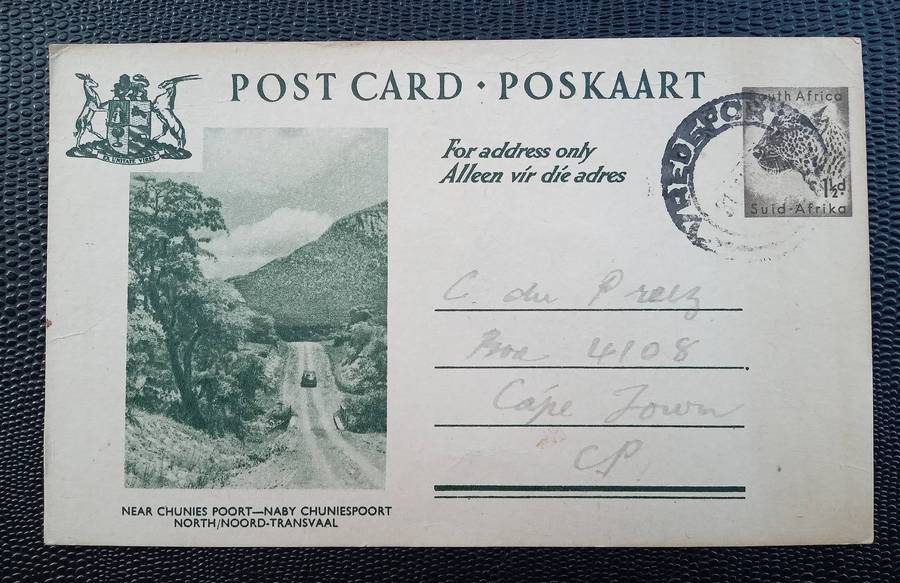 POST CARD • POSKAART
EX UNITATE VIRES
For address only
Alleen vir die adres
VREDEPORT
South Africa
1½d
Suid-Afrika
C. du Preez
Box 4108
Cape Town
CP
NEAR CHUNIES POORT—NABY CHUNIESPOORT
NORTH/NOORD-TRANSVAAL